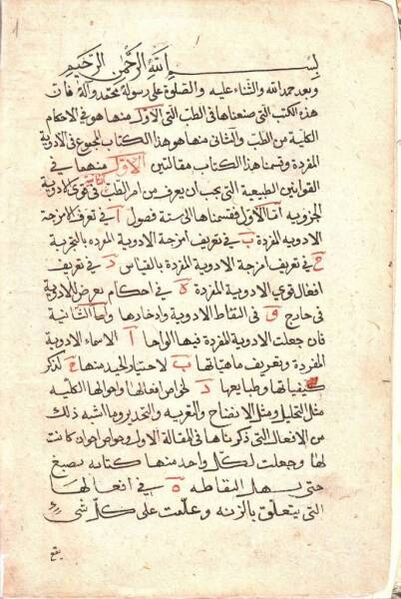 بسم الله الرحمن الرحيم
وبعد حمد الله والثناء عليه والصلوة على رسوله محمد وآله فان
هذه الكتب التى صنعناها فى الطب التى الاول منها هو فى الاحكام
الكلية من الطب والثانى منها هو هذا الكتاب المجموع فى الادوية
المفردة وقسمنا هذا الكتاب مقالتين الاول منهما فى
القوانين الطبيعية التى يجب ان يعرف من امر الطب فى قوى الادوية
الجزويه اما الاول فقسمناها الى ستة فصول ا فى تعرف امزجة
الادويه المفردة ب فى تعريف امزجة الادوية المفرده بالتجربة
ج فى تعريف امزجة الادوية المفردة بالقياس د فى تعريف
افعال قوى الادوية المفردة ه فى احكام يعرض للادوية
فى خارج و فى التقاط الادوية وادخارها واما الثانية
فان جعلت الادوية المفردة فيها الواحا ا لاسماء الادوية
المفردة وتعريف ماهياتها ب لاختيار الجيد منها ج لذكر
كيفياتها وطبايعها د لخواص افعالها واحوالها الكليه
مثل التحليل ومثل الانضاج والتغريه والتخدير وما اشبه ذلك
من الافعال التى ذكرناها فى المقالة الاولى وخواص اخوان كانت
لها وجعلت لكل واحد منها كتابه بصبغ
حتى يسهل التقاطه ه فى افعالها
التى يتعلق بالزينه وعلمت على كل شى
يقع